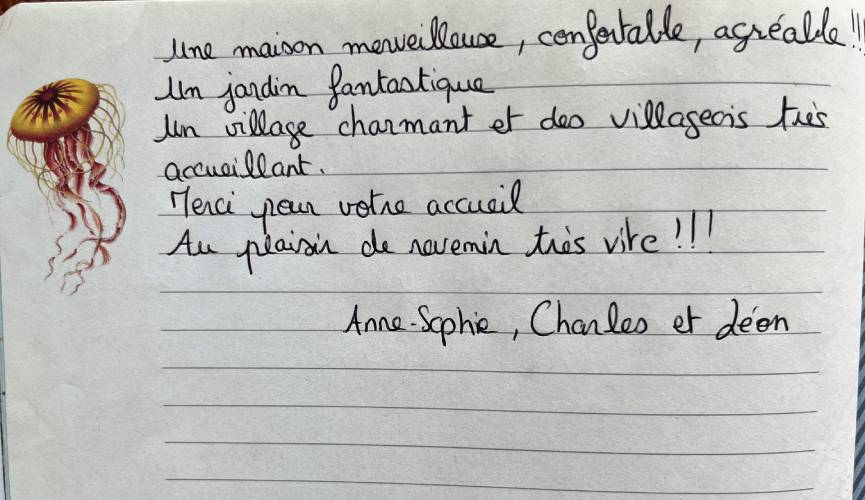 Une maison merveilleuse, confortable, agréable !!!
Un jardin fantastique
Un village charmant et des villageois très
accueillant.
Merci pour votre accueil
Au plaisir de revenir très vite !!!
Anne-Sophie, Charles et Léon